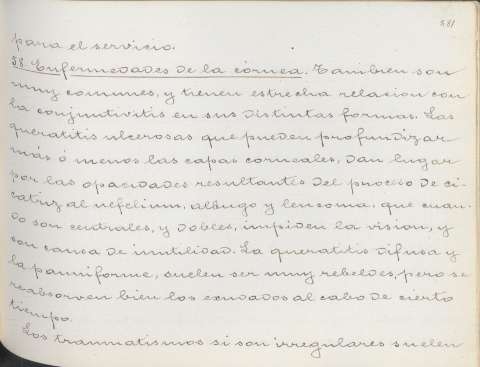 581
para el servicio.
38. Enfermedades de la córnea. Tambien son
muy comunes, y tienen estrecha relacion con
la conjuntivitis en sus distintas formas. Las
queratitis ulcerosas que pueden profundizar
más ó menos las capas corneales, dan lugar
por las opacidades resultantes del proceso de ci-
catriz al nefelium, albugo y leucoma, que cuan-
do son centrales, y dobles, impiden la vision, y
son causa de inutilidad. La queratitis difusa y
la panniforme, suelen ser muy rebeldes, pero se
reabsorven bien los exudados al cabo de cierto
tiempo.
Los traumatismos si son irregulares suelen